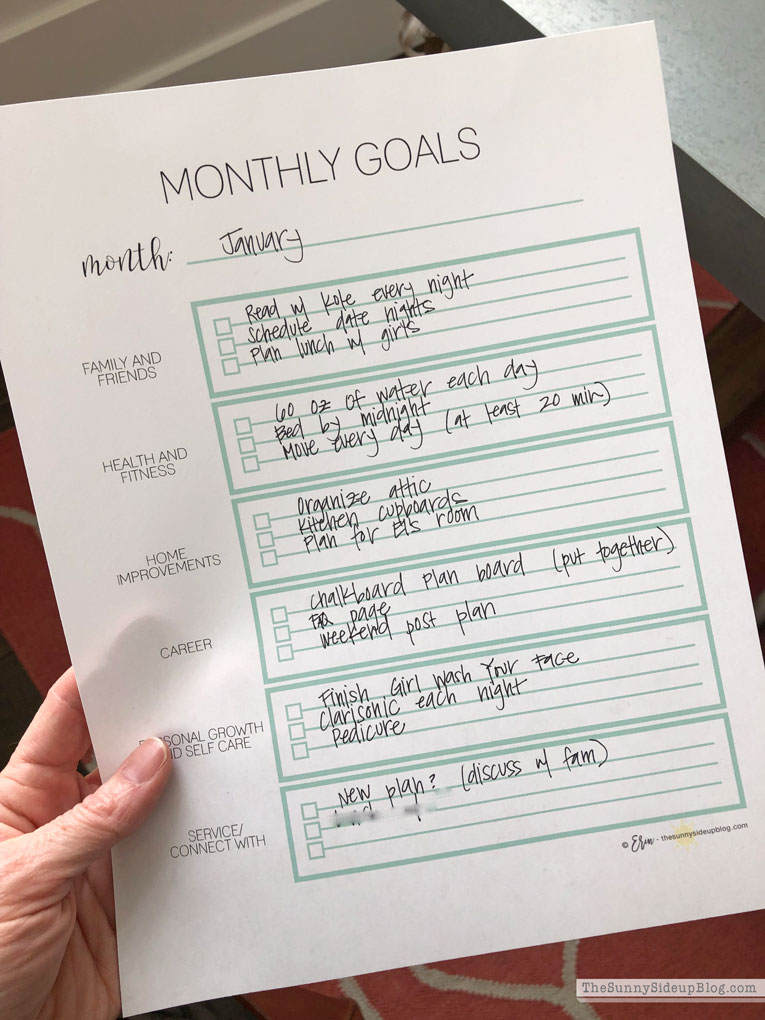 MONTHLY GOALS
month: January
FAMILY AND FRIENDS
Read w/ Kate every night
Schedule date nights
Plan lunch w/ girls
HEALTH AND FITNESS
60 oz of water each day
Bed by midnight
Move every day (at least 20 min)
HOME IMPROVEMENTS
Organize attic
Kitchen cupboards
Plan for El's room
CAREER
Chalkboard plan board (put together)
FAQ page
Weekend post plan
SONAL GROWTH
ND SELF CARE
Finish Girl Wash Your Face
Clarisonic each night
Pedicure
SERVICE/
CONNECT WITH
New plan? (discuss w/ fam)
© Erin - thesunnysideupblog.com
TheSunnySideupBlog.com